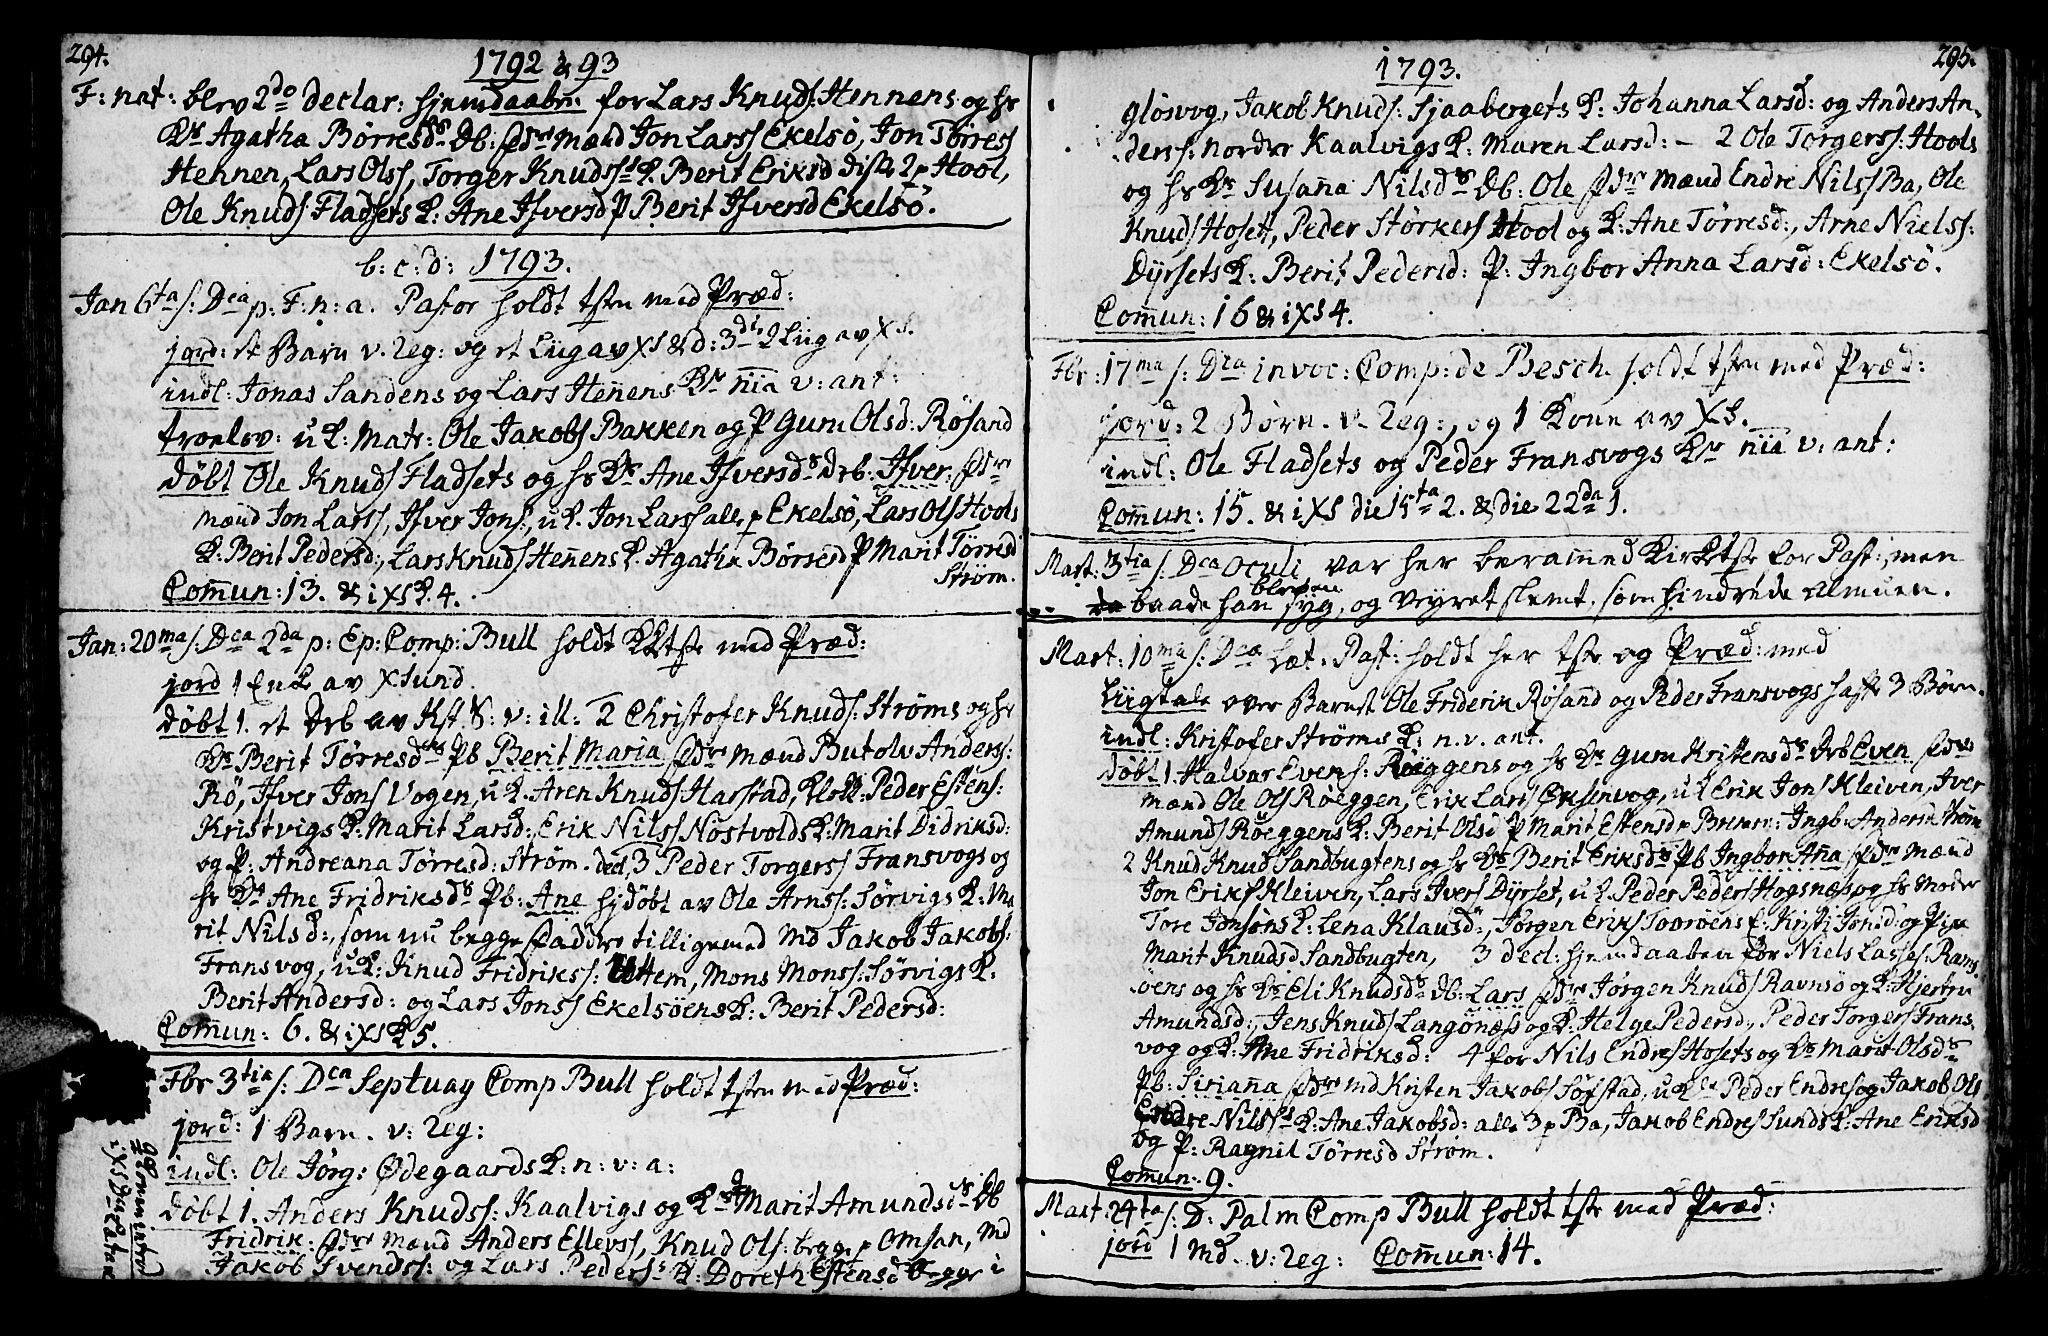 294.
1792 & 93
F: nat: blev 2do declar: hjemdaabn: for Lars Knuds: Hennens og hs
Ks Agatha Børresds Db: fdre mænd Jon Larss Ekelsö, Jon Törress
Hennen, Lars Olss, Torger Knudss K: Berit Eriksd disse 2 p Hool,
Ole Knuds Fladsets K: Ane Ifversd P Berit Ifversd Ekelsö.
b: c: d: 1793.
Jan 6ta s: Dca p: F: n: a. Pastor holdt tsten med Præd:
jord: et Barn v. Reg: og et Liig av XS & d: 3die Liig av XS.
indl: Jonas Sandens og Lars Hennens Kr nia v: ant:
troelov: u K: Matr: Ole Jakobs Bakken og P Gum Olsd: Røsand
döbt Ole Knuds Fladsets og hs Ks Ane Ifversds Drb: Ifver: fdre
mænd Jon Larss, Ifver Jons:, u K. Jon Larss alle p Ekelsö, Lars Ols Hools
K: Berit Pedersd:, Lars Knuds Hennens K: Agatha Börresd P Marit Törresd
Ström.
Comun: 13. & i XS K. 4.
Jan: 20ma s: Dca 2da p: Ep: Comp: Bull holdt Ktste med Præd:
jord 1 Enk av XSund.
döbt 1. et Drb av Kst. S: v: ill: 2 Christofer Knuds: Ströms og hs
Ks Berit Törresds Pb Berit Maria fdre mænd Butolv Anders:
Rö, Ifver Jons Vogen, u K. Aren Knuds Harstad, Klokk: Peder Estens:
Kristvigs K: Marit Larsd:, Erik Nilss Nostvolds K: Marit Didriksd:
og P: Andreana Törresd: Ström. decl, 3 Peder Torgerss Fransvogs og
hs Ks Ane Fridriksds Pb: Ane hjdöbt av Ole Arns: Sörvigs K: Ma
rit Nilsd:, som nu begge fadder tilligemed Md Jakob Jakobs:
Fransvog, u K: Knud Fridrikss: Uttem, Mons Monss: Sörvigs K:
Berit Andersd: og Lars Jonss Ekelsöens K: Berit Pedersd:
Comun: 6. & i XS K 5.
Fbr 3tia s: Dca Septuag Comp Bull holdt tsten med Præd:
jord: 1 Barn. v: Reg:
indl: Ole Jörg: Ødegaards K: n: v: a:
döbt 1. Anders Knudss: Kaalvigs og Ks Marit Amundsds Db
Fridrik: fdre mænd Anders Ellevss, Knud Ols: begge p Omsan, Md
Jakob Svends: og Lars Pederss K: Doreth Estensd begge i
295.
1793.
glösvog, Jakob Knuds: Sjaabergets K: Johanna Larsd: og Anders An-
ders: Norder Kaalvigs K: Maren Larsd: - 2 Ole Torgerss: Hools
og hs Ks Susana Nilsds Db: Ole fdre mænd Endre Nilss Ba, Ole
Knuds Hosett, Peder Störkers Hool og K: Ane Törresd:, Arne Nielss:
Dyrsets K: Berit Pedersd: P: Ingbor Anna Larsd: Ekelsö.
Comun: 16 & i XS 4.
Fbr: 17ma s: Dca invoc: Comp: de Besch. holdt tsten med Præd:
jord: 2 Börn. v. Reg:, og 1 Kone av XS.
indl: Ole Fladsets og Peder Fransvogs Kr nia v: ant:
Comun: 15. & i XS die 15ta 2. & die 22da 1.
Mart: 3tia s: Dca Oculi var her berammed Kirketste for Past:, men
baade han bleven syg, og Veyret slemt, som hindrede Almuen.
Mart: 10ma s: Dca Læt. Past: holdt her tste og Præd: med
Liigtale over Barnet Ole Friderik Røsand og Peder Fransvogs 3 Börn.
indl: Kristofer Ströms K: n. v. ant.
döbt 1. Halvar Evens: Røeggens og hs Ks Gum Kristensds Drb Even fdre
mænd Ole Ols Røeggen, Erik Larss Oksenvog, u K Erik Jons Kleiven, Iver
Amunds Røeggens K: Berit Olsd P Marit Estensd p Bremn: Ingb: Andersd Ström
2 Knud Knuds Sandbugtens og hs Ks Berit Eriksds Pb Ingbor Ana fdre mænd
Jon Eriks Kleiven, Lars Ivers Dyrset, u K. Peder Peders Hognæs og hs Moder
Tore Jonsöns K: Lena Klausd:, Jörgen Eriks Tovröens K: Kirst: Jonsd: og Pige
Marit Knudsd Sandbugten, 3 decl: hjemdaaben for Niels Lasses: Ravns-
öens og hs Ks Eli Knudsds Db: Lars fdre Jörgen Knuds Ravnsö og K: Hjertru
Amundsd:, Jens Knuds Langönæs og K: Helge Pedersd:, Peder Torgers Frans-
vog og K: Ane Fridriksd: 4 for Nils Endres Hosets og Ks Marit Olsds
Pb: Siriana fdre md Kristen Jakobs Sofstad, u K. Peder Endres og Jakob Ols
Endre Nilss K: Ane Jakobsd: alle 3 p Ba, Jakob Endres Sunds K: Ane Eriksd
og P: Ragnil Törresd Ström.
Comun: 9.
Mart: 24ta s: D: Palm Comp Bull holdt tste med Præd:
jord 1 Md. v: Reg: Comun: 14.